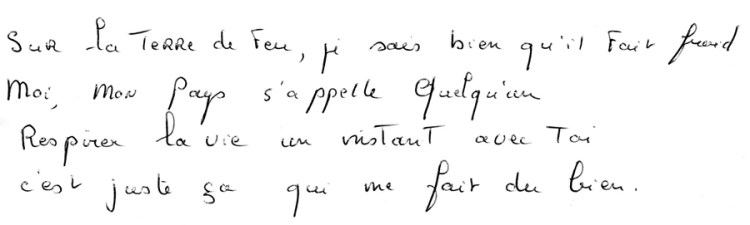 Sur la Terre de Feu, je sais bien qu'il Fait froid
Moi, mon Pays s'appelle Quelqu'un
Respirer la vie un instant avec Toi
c'est juste ça qui me fait du bien.